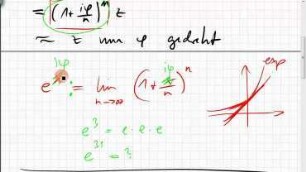 = (1 + iφ/n)ⁿ z
≈ z um φ gedreht
e^{iφ} = lim_{n→∞} (1 + iφ/n)ⁿ
exp
e³ = e · e · e
e^{3i} = ?